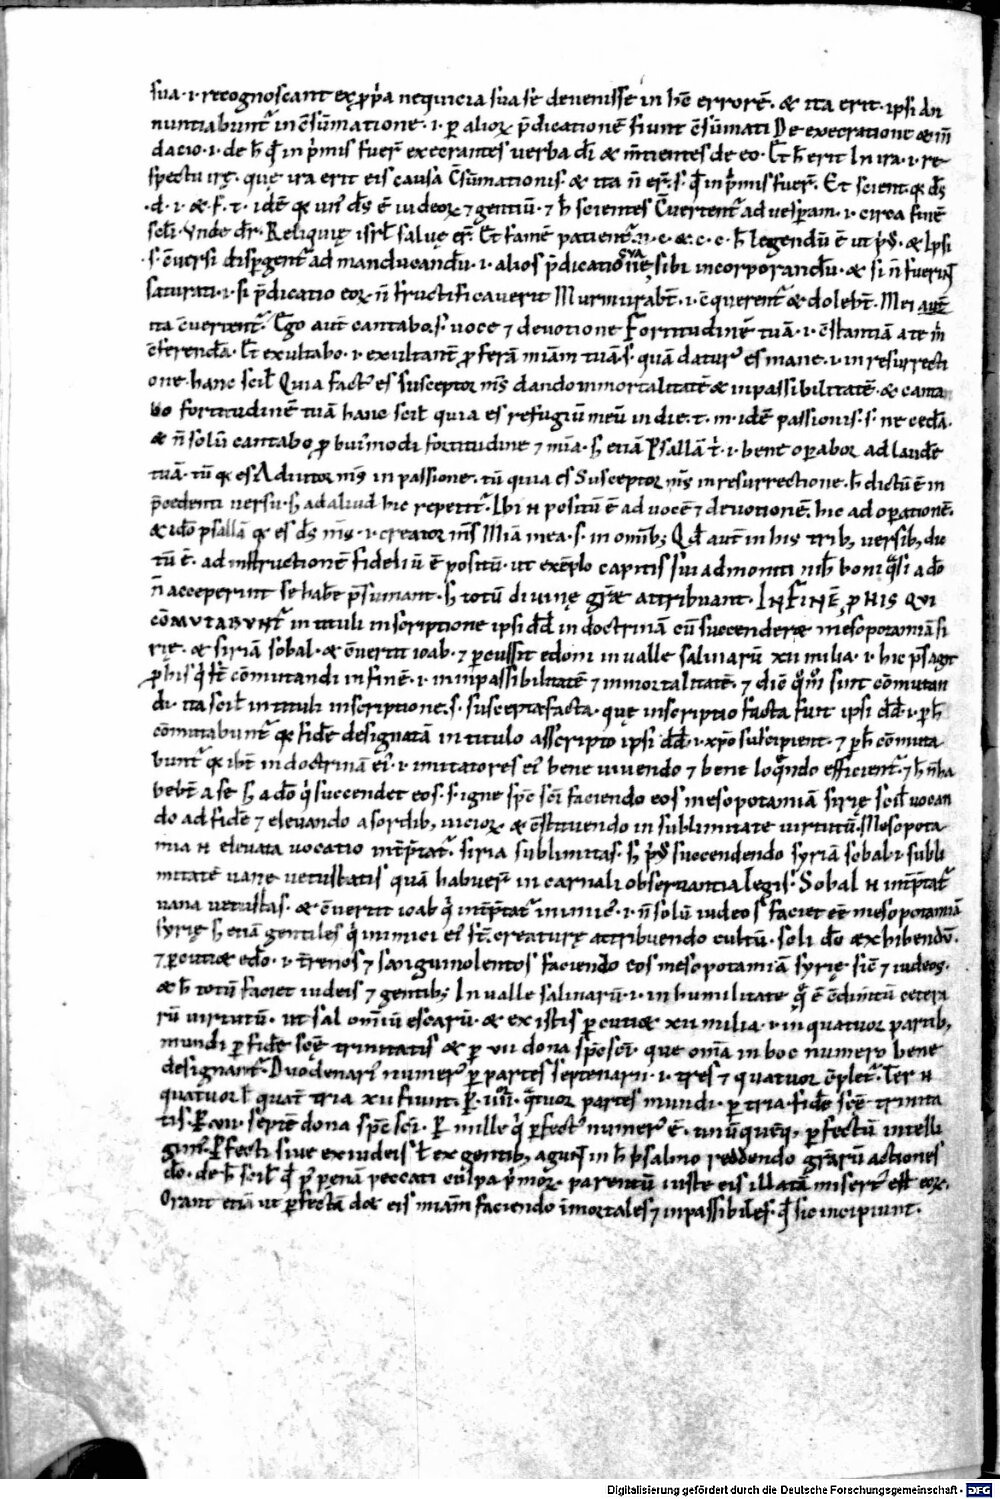 sua · i · recognoscant ex ꝓpa nequicia sua se devenisse in hc̄ errorē · & ita erit · ipsi an
nuntiabunt᷑ in c̄sūmatione · i · ꝑ alioꝝ p̄dicationē fiunt c̄sūmati De execratione & m̄
dacio · i · de h̄ qd̄ in p̄mis fuer̄ execrantes verba dī & m̄tientes de eo · Et h̄ erit In ira · i · re
spectu irę · que ira erit eis causa c̄sūmationis · & ita n̄ er̄t · s · qd̄ in p̄mis fuer̄ · Et scient qꝫ ds̄
· d · i · & · f · t · idē qꝫ un᷒ ds̄ ē iudeoꝝ ⁊ gentiū · ⁊ h̄ scientes c̄vertent᷑ ad vesꝑam · i · circa finē
scl̄i · Unde dr̄ · Reliquię isrl̄ salvę er̄t · Et famē patient᷑ · n · c · & · c · c · h̄ legendū ē ut p̄s̄ · & Ipsi
· s · c̄versi disꝑgent᷑ ad manducandū · i · alios p̄dicatione sua sibi incorporandū · & si n̄ fuerin̄t
saturati · i · si p̄dicatio eoꝝ n̄ fructificaverit Murmurabt̄ · i · c̄querent᷑ & dolebt̄ · Mei aut̄
ita c̄vertent᷑ · Ego aut̄ cantabo · s · voce ⁊ devotione Fortitudinē tuā · i · c̄stantiā a te m̄
c̄ferendā · Et exultabo · i · exultant̄ ꝓferā miam tuā · s · quā datur᷒ es mane · i · in resurrecti
one · hanc scil̄ Quia fact᷒ es susceptor ms̄ dando inmortalitatē & inpassibilitatē · & canta
bo fortitudinē tuā hanc scil̄ quia es refugiū meū in die · t · m · idē passionis · s · ne cedā ·
& n̄ solū cantabo ꝓ huiusmodi fortitudine ⁊ mīa · s; etiā Psallā t̄ · i · bene oꝑabor ad laudē
tuā · tū qꝫ es Adiutor ms̄ in passione · tū quia es Susceptor ms̄ in resurrectione · h̄ dictū ē in
p̄cedenti versu · s; ad aliud hic repetit᷑ · Ibi n̄ positū ē ad vocē ⁊ devotionē · hic ad oꝑationē ·
& idō psallā qꝫ es ds̄ ms̄ · i · creator ms̄ Miā mea · s · in omīb; Qd̄ aut̄ in his trib; versib; dic
tū ē · ad instructionē fideliū ē positū · ut exēplo capitis sui admoniti nih̄ boni qͣsi a dō
n̄ acceperint se habe p̄sumant · s; totū divinę grāe attribuant · IN FINĒ ꝓ HIS QUI
CŌMUTABUNT᷑ in tituli inscriptione ipsi dd̄ in doctrinā cū succenderet mesopotamiā si
rię · & siriā sobal · & c̄vertit ioab · ⁊ ꝑcussit edom in valle salinarū XII milia · i · hic p̄sagit᷑
ꝓ his qͥ st̄ cōmutandi in finē · i · in inpassibilitatē ⁊ inmortalitatē · ⁊ dic qͦm sunt cōmutan
di · ita scil̄ in tituli inscriptione · s · suscepta facta · quę inscriptio facta fuit ipsi dd̄ · i · ꝑ h̄
cōmutabunt᷑ qꝫ fidē designatā in titulo asscripto ipsi dd̄ · i · xp̄o suscipient · ⁊ ꝑ h̄ cōmuta
bunt᷑ qꝫ ibt̄ in doctrinā ei᷒ · i · imitatores ei᷒ bene vivendo ⁊ bene loqͣndo efficient᷑ · ⁊ h̄ n̄ ha
bebt̄ a se s; a dō qͥ succendet eos · s · igne sp̄c scī faciendo eos mesopotamiā sirię scil̄ vocan
do ad fidē ⁊ elevando a sordib; vicioꝝ · & c̄stituendo in sublimitate virtutū · Mesopota
mia n̄ elevata vocatio int̄p̄tat᷑ · siria sublimitas · s; p̄s̄ succendendo syriā sobal · i · subli
mitatē vanę vetustatis quā habuer̄ in carnali observantia legis · Sobal n̄ int̄p̄tat᷑
vana vetustas · & c̄vertit ioab qͥ int̄p̄tat᷑ inimic᷒ · i · n̄ solū iudeos faciet eē mesopotamiā
syrię s; etiā gentiles qͥ inimici ei᷒ st̄ · creaturę attribuendo cultū · soli dō exhibendū ·
⁊ ꝑcutiet edō · i · t̄renos ⁊ sanguinolentos faciendo eos mesopotamiā syrię sic̄ ⁊ iudeos ·
& h̄ totū faciet iudeis ⁊ gentib; In valle salinarū · i · in humilitate qͣ ē c̄dim̄tū cetera
rū virtutū · ut sal omniū escarū · & ex istis ꝑcutiet XII milia · i · in quatuor partib;
mundi ꝑ fidē scę trinitatis & ꝑ VII dona sp̄c scī · que oma in hoc numero bene
designant᷑ · Duodenari᷒ numer᷒ ꝑ partes septenarii · i · tres ⁊ quatuor c̄plet᷑ · Ter n̄
quatuor l̄ quat̄ tria XII fiunt · Ꝑ · IIII · qͣtuor partes mundi · ꝑ tria · fidē scę trinita
tis · Ꝑ · VII · septē dona sp̄c scī · Ꝑ mille qͥ ꝑfect᷒ numer᷒ ē · unūquēq; ꝑfectū intelli
gim᷒ · Ꝑfecti sive ex iudeis l̄ ex gentib; agunt in h̄ psalmo reddendo grārū actiones
dō · de h̄ scil̄ qd̄ p᷒ penā peccati culpa p̄moꝝ · parentū iuste eis illatā misert᷒ est eoꝝ ·
Orant etiā ut ꝑfectā det eis miam faciendo imortales ⁊ inpassibiles · qd̄ sic incipiunt ·
Digitalisierung gefördert durch die Deutsche Forschungsgemeinschaft - DFG